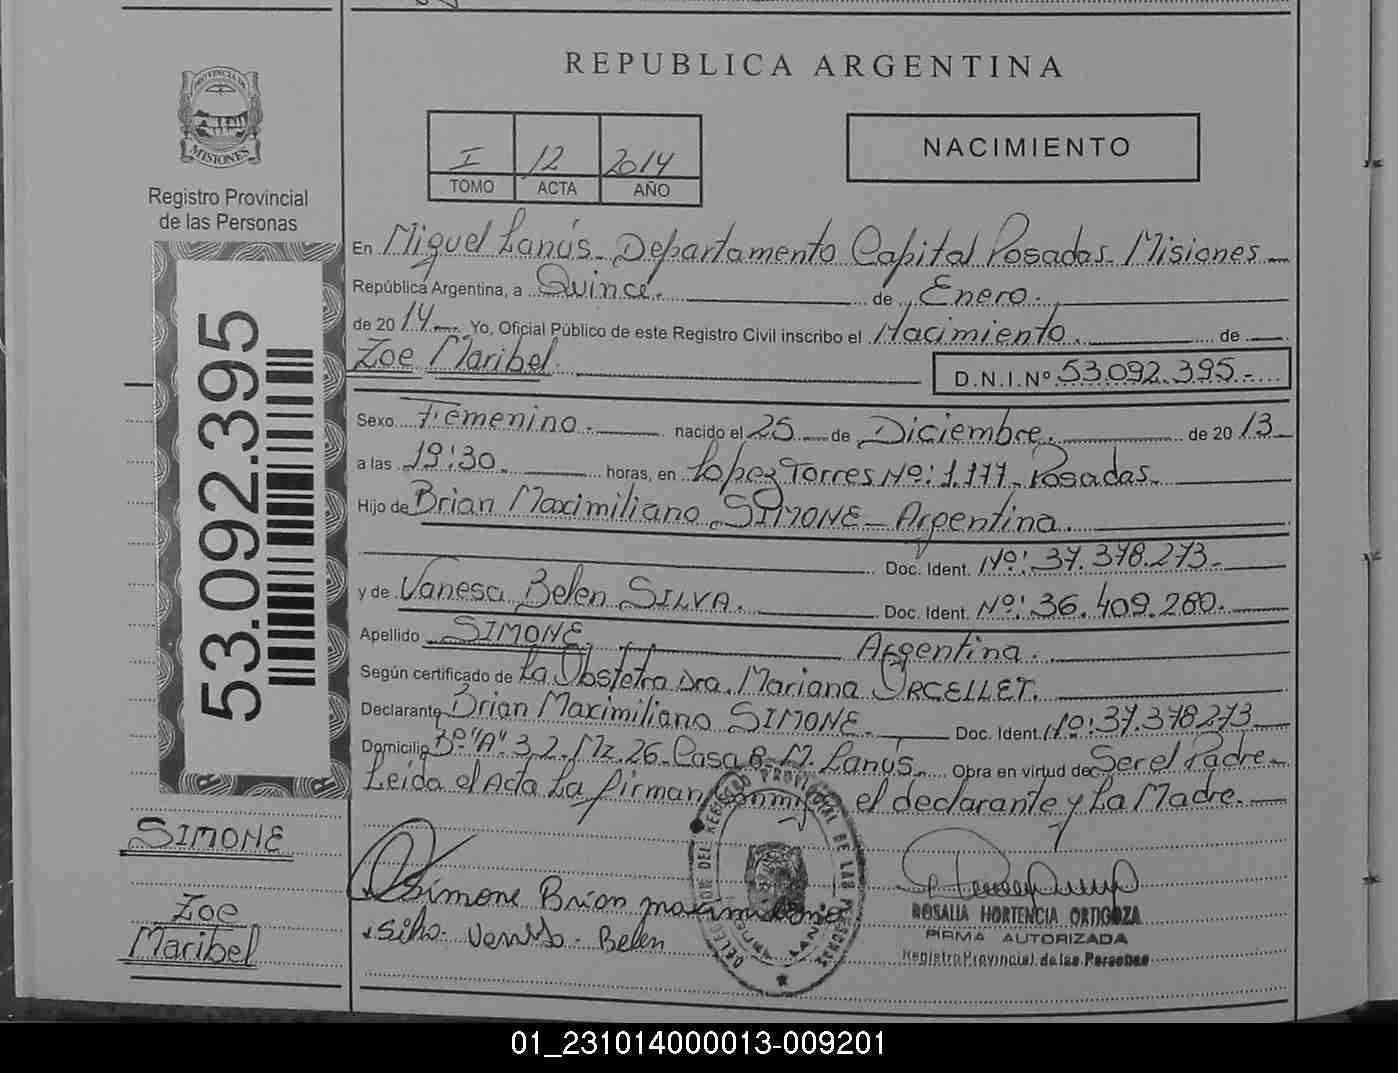 REPUBLICA ARGENTINA
PROVINCIA DE
MISIONES
Registro Provincial
de las Personas
I 12 2014
TOMO ACTA AÑO
NACIMIENTO
53.092.395
En Miguel Lanús- Departamento Capital Posadas- Misiones
República Argentina, a Quince. de Enero.
de 2014 Yo, Oficial Público de este Registro Civil inscribo el Nacimiento. de
Zoe Maribel. D.N.I.Nº 53.092.395-
Sexo Femenino. nacido el 25 de Diciembre. de 2013
a las 19:30. horas, en Lopez Torres Nº: 1.177- Posadas.
Hijo de Brian Maximiliano SIMONE- Argentina.
Doc. Ident. Nº: 37.378.273-
y de Vanesa Belen SILVA. Doc. Ident. Nº: 36.409.280.
Apellido SIMONE. Argentina.
Según certificado de La Obstetra Dra. Mariana ORCELLET.
Declarante Brian Maximiliano SIMONE. Doc. Ident. Nº: 37.378.273
Domicilio Bº "A" 3,2- Mz. 26- Casa 8- M. Lanús. Obra en virtud de Ser el Padre-
Leida el Acta La firman conmigo el declarante y La Madre.
SIMONE
Zoe
Maribel
Simone Brian maximiliano
Silva. Vanesa. Belen
DELEGACION DEL REGISTRO PROVINCIAL DE LAS PERSONAS
MIGUEL LANUS
ROSALIA HORTENCIA ORTIGOZA
FIRMA AUTORIZADA
Registro Provincial de las Personas
01_231014000013-009201